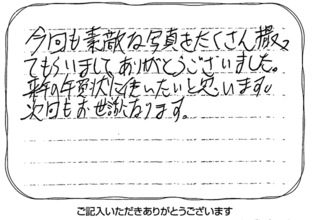 今回も素敵な写真をたくさん撮っ
てもらいまして、ありがとうございました。
来年の年賀状に使いたいと思います。
次回もお世話になります。
ご記入いただきありがとうございます